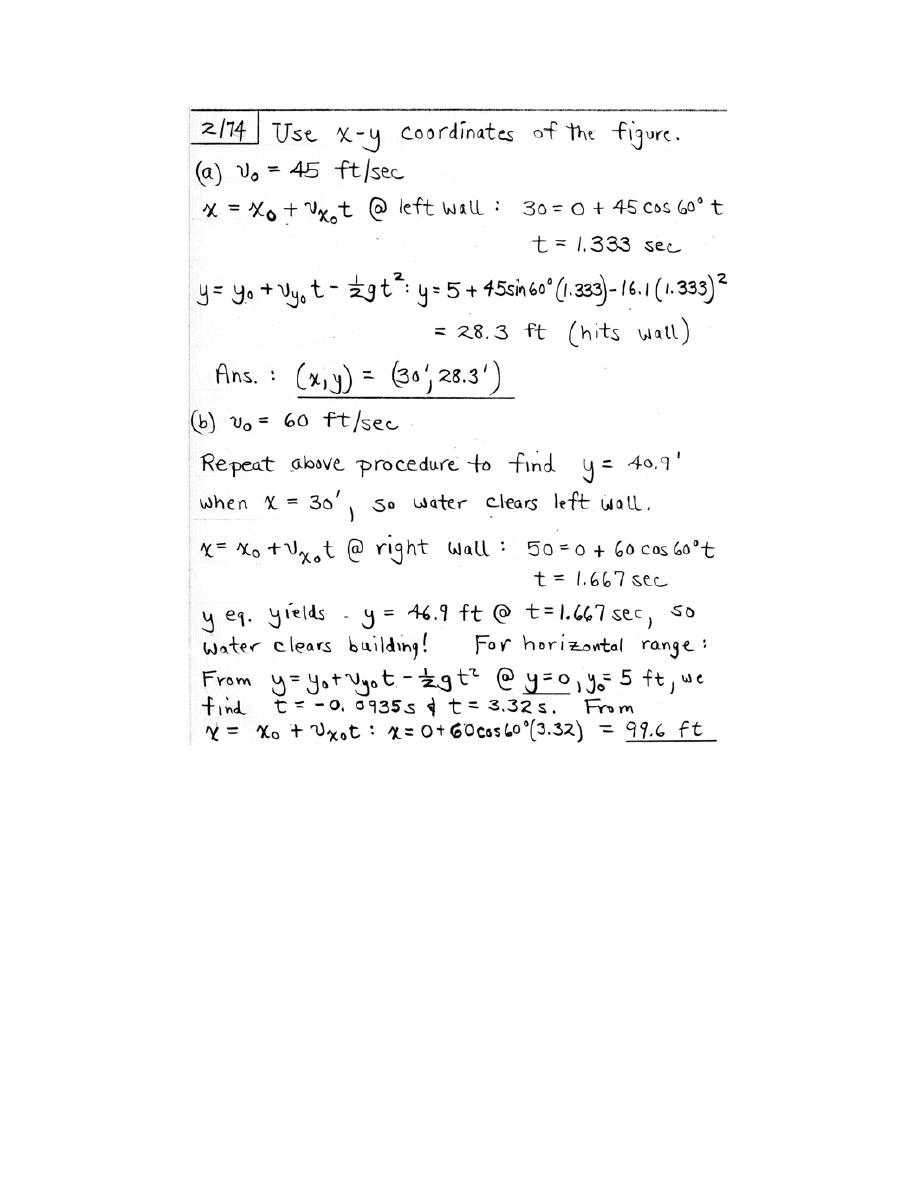 2/74 Use x-y coordinates of the figure.
(a) v₀ = 45 ft/sec
x = x₀ + vx₀t @ left wall : 30 = 0 + 45 cos 60° t
t = 1.333 sec
y = y₀ + vy₀t - ½gt² : y = 5 + 45sin60°(1.333) - 16.1(1.333)²
= 28.3 ft (hits wall)
Ans. : (x, y) = (30', 28.3')
(b) v₀ = 60 ft/sec
Repeat above procedure to find y = 40.9'
when x = 30', so water clears left wall.
x = x₀ + vx₀t @ right wall : 50 = 0 + 60 cos 60° t
t = 1.667 sec
y eq. yields y = 46.9 ft @ t = 1.667 sec, so
water clears building! For horizontal range :
From y = y₀ + vy₀t - ½gt² @ y = 0, y₀ = 5 ft, we
find t = -0.0935 s & t = 3.32 s. From
x = x₀ + vx₀t : x = 0 + 60cos60°(3.32) = 99.6 ft